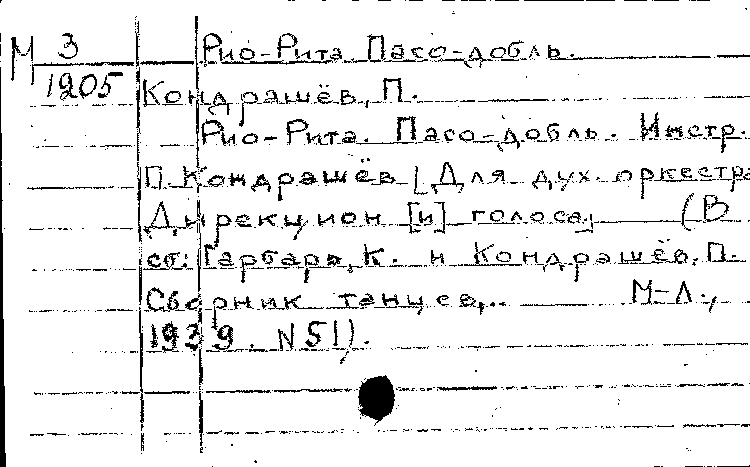 М 3 Рио-Рита. Пасо-добль.
1205 Кондрашёв, П.
Рио-Рита. Пасо-добль. Инстр.
П. Кондрашёв [Для дух. оркестра
Дирекцион [и] голоса] (В
сб.: Гарбарь, К. и Кондрашёв, П.
Сборник танцев,.. М-Л.,
1939. N51).